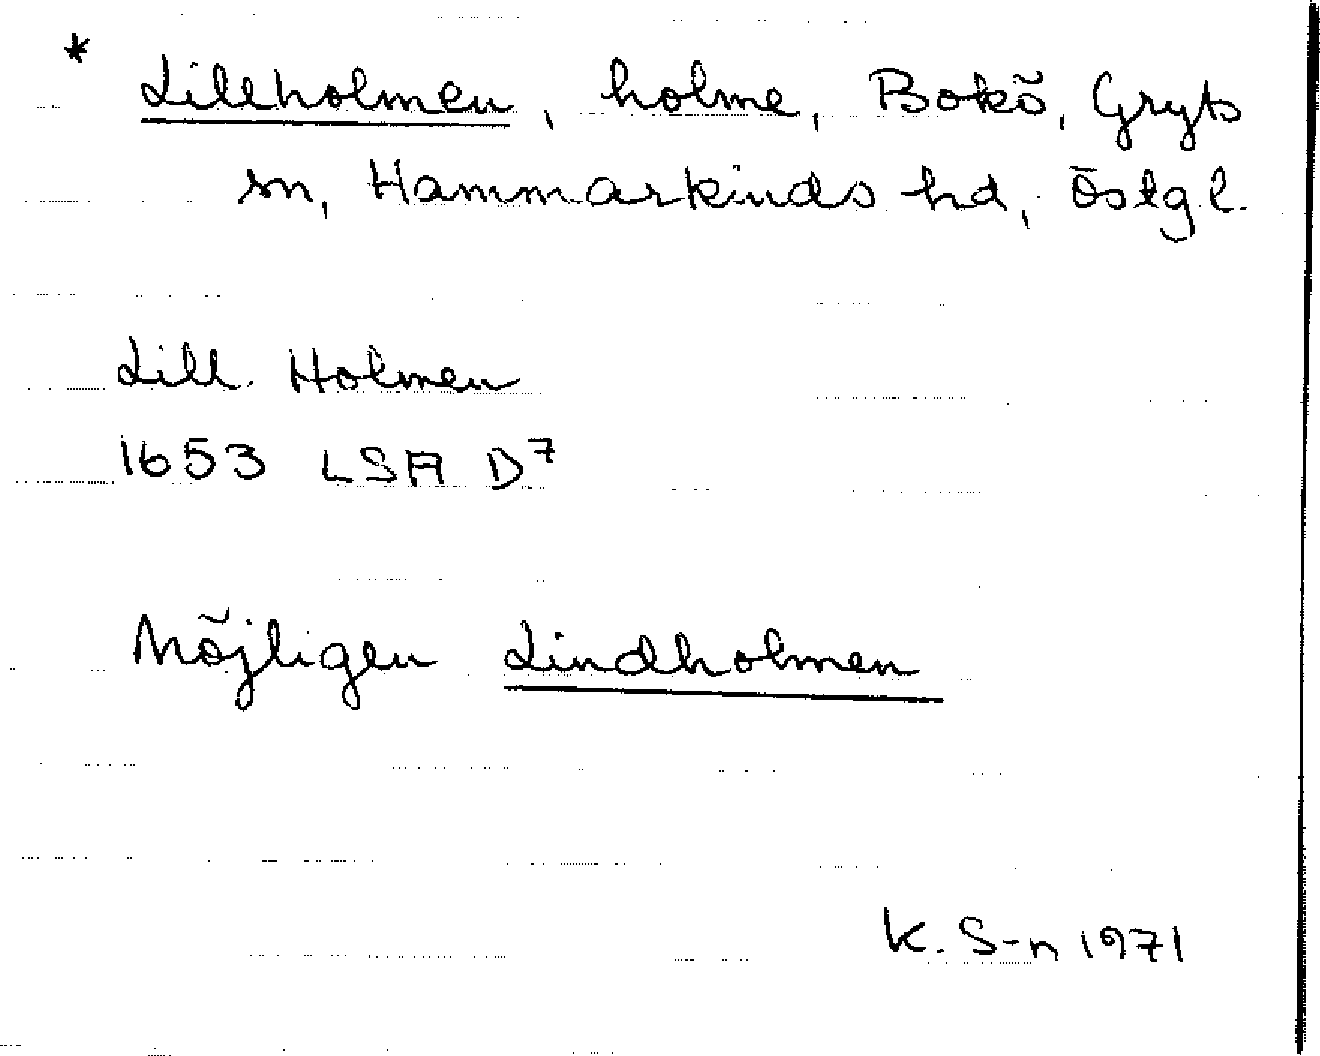 * Lillholmen, holme, Bokö, Gryts
sn, Hammarkinds hd, Östgl.
Lill. Holmen
1653 LSA D7
Möjligen Lindholmen
K. S-n 1971